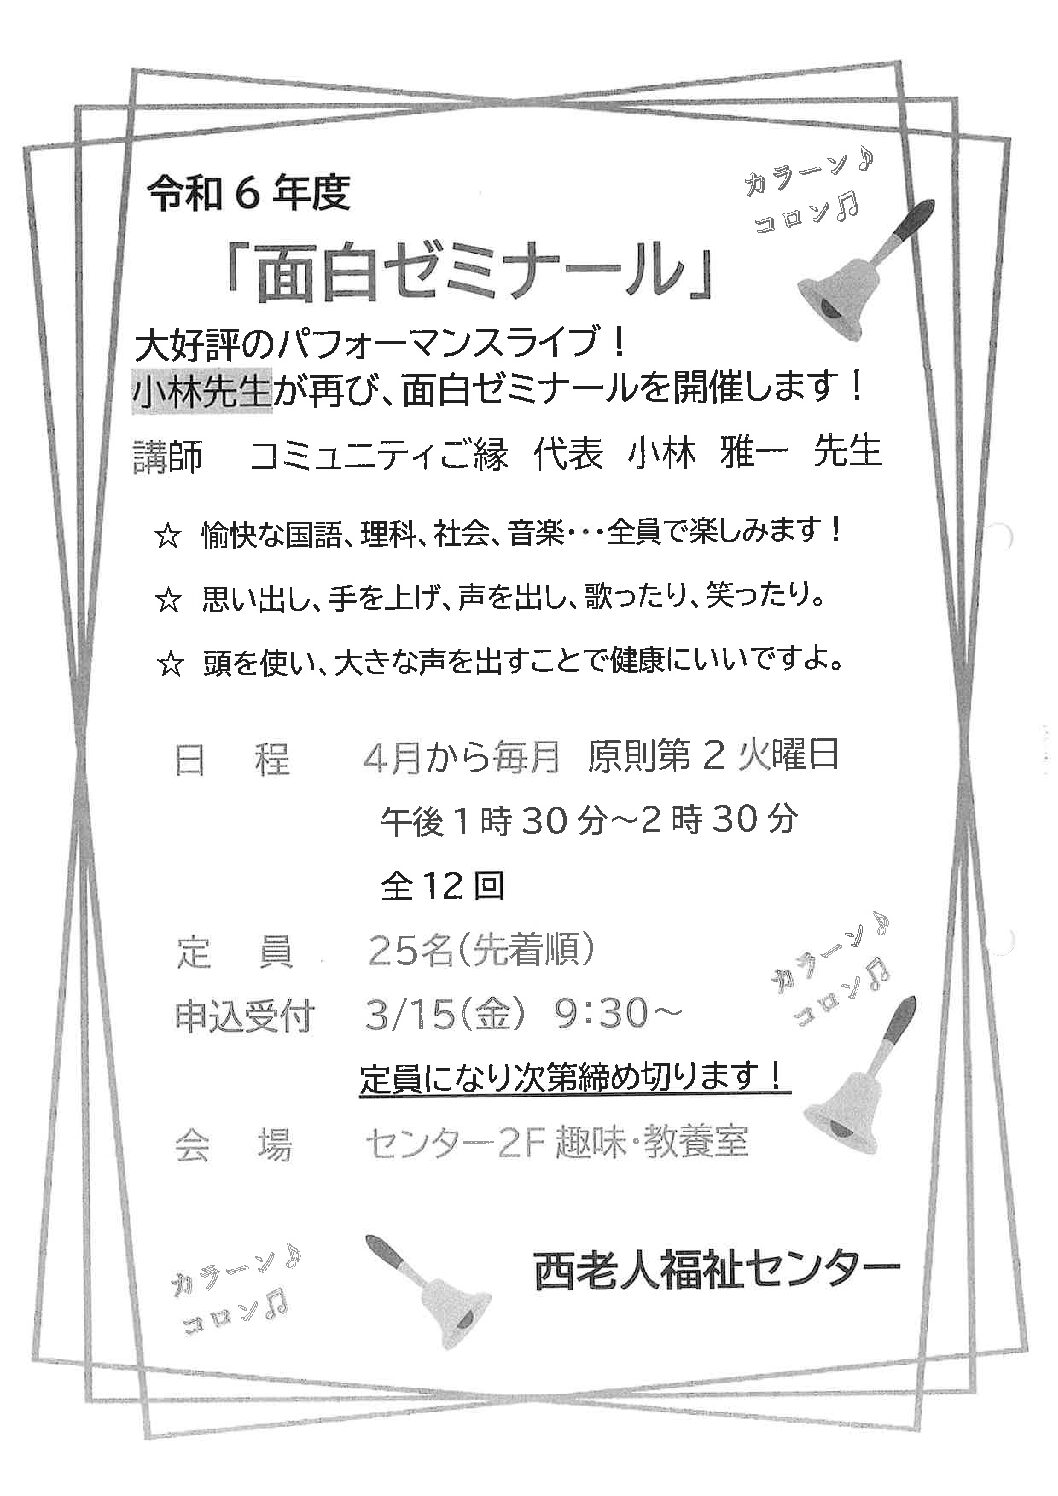 令和６年度
カラーン♪
コロン♫
「面白ゼミナール」
大好評のパフォーマンスライブ！
小林先生が再び、面白ゼミナールを開催します！
講師　コミュニティご縁　代表　小林　雅一　先生
☆　愉快な国語、理科、社会、音楽・・・全員で楽しみます！
☆　思い出し、手を上げ、声を出し、歌ったり、笑ったり。
☆　頭を使い、大きな声を出すことで健康にいいですよ。
日　程　４月から毎月　原則第２火曜日
午後１時３０分～２時３０分
全１２回
定　員　２５名（先着順）
カラーン♪
コロン♫
申込受付　３/１５（金）　９：３０～
定員になり次第締め切ります！
会　場　センター２Ｆ趣味・教養室
カラーン♪
コロン♫
西老人福祉センター